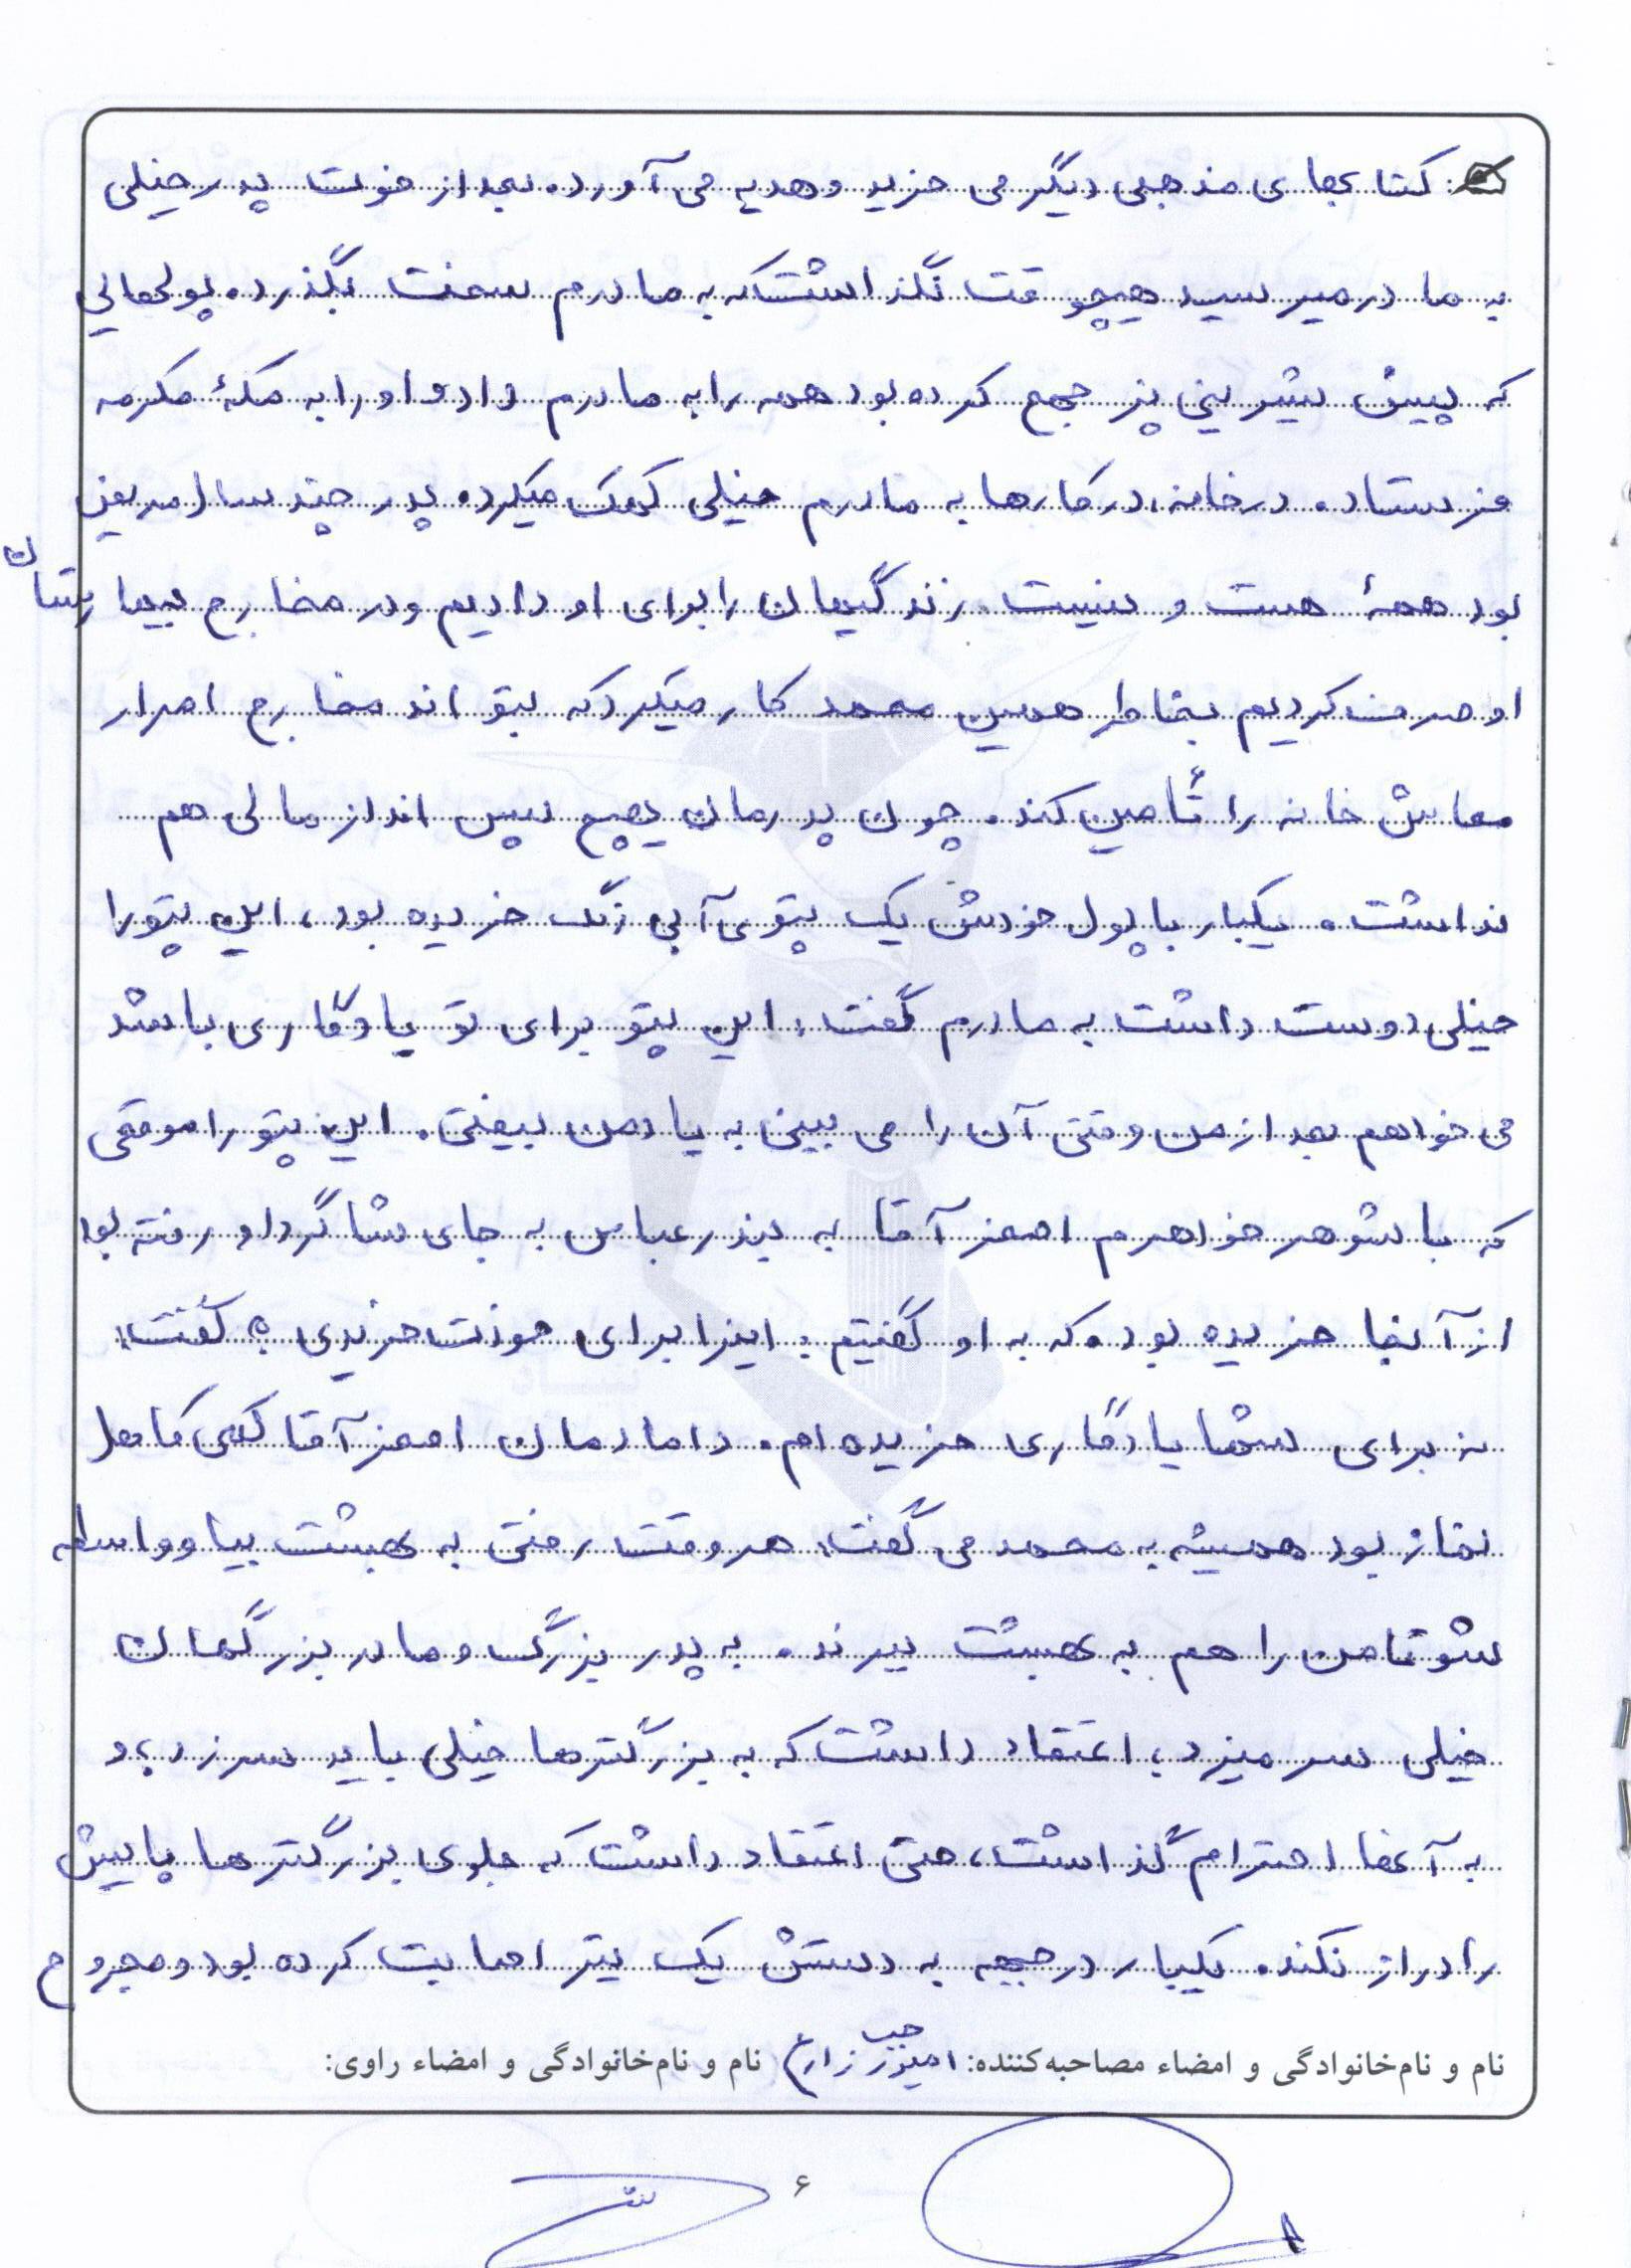 کتابهای مذهبی دیگر می خرید و هدیه می آورد. بعد از فوت پدر خیلی
به مادر میرسید هیچوقت نگذاشت که به مادرم سخت بگذرد. پولهایی
که پیش شیرینی پز جمع کرده بود همه را به مادرم داد و او را به مکهٔ مکرمه
فرستاد. در خانه، در کارها به مادرم خیلی کمک میکرد. پدر چند سال مریض
بود همهٔ هست و نیست زندگیمان را برای او دادیم و در مخارج بیمارستان
او صرف کردیم بخاطر همین محمد کار میکرد که بتواند مخارج امرار
معاش خانه را تأمین کند. چون پدرمان هیچ پس انداز مالی هم
نداشت. یکبار با پول خودش یک پتوی آبی رنگ خریده بود، این پتو را
خیلی دوست داشت به مادرم گفت: این پتو برای تو یادگاری باشد
می خواهم بعد از من وقتی آن را می بینی به یاد من بیفتی. این پتو را موقعی
که با شوهر خواهرم اصغر آقا به بندرعباس به جای شاگرد او رفته بود
از آنجا خریده بود. که به او گفتیم: اینرا برای خودت خریدی؟ گفت:
نه برای شما یادگاری خریده ام. دامادمان اصغر آقا کمی کاهل
نماز بود همیشه به محمد می گفت: هر وقت رفتی به بهشت بیا و واسطه
شو تا من را هم به بهشت ببرند. به پدر بزرگ و مادر بزرگمان
خیلی سر میزد، اعتقاد داشت که به بزرگترها خیلی باید سر زد، و
به آنها احترام گذاشت، حتی اعتقاد داشت که جلوی بزرگترها پایش
را دراز نکند. یکبار در جبهه به دستش یک تیر اصابت کرده بود و مجروح
نام و نام‌خانوادگی و امضاء مصاحبه‌کننده: زارع نام و نام‌خانوادگی و امضاء راوی:
۶